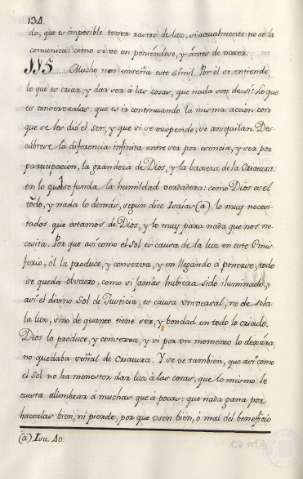 134.
do, que es imposible tener rastro de luz, si actualmente no se la
comunica: como se ve en poniendose, y antes de nacer.
115 Mucho nos enseña este simil. Por èl se entiende,
lo que es criar, y dar ser à las cosas, que nada son de sì: lo que
es conservarlas: que es ir continuando la misma accion con
que se les diò el ser, y que si se suspende, se aniquilan. Des-
cubrese la diferencia infinita entre ser por esencia, y ser por
participacion, la grandeza de Dios, y la baxeza de la Criatura:
en lo que se funda, la humildad verdadera: como Dios es el
todo, y nada lo demás, segun dice Isaias (a), lo muy neces-
itados que estamos de Dios, y lo muy para nada que nos ne-
cesita. Por que asi como el Sol es causa de la luz en este Emis-
ferio, èl la produce, y conserva, y en llegando à ponerse, todo
se queda obscuro, como si jamàs hubiera sido iluminado;
asi el divino Sol de Justicia, es causa universal, no de sola
la luz, sino de quanto tiene ser, y bondad en todo lo criado.
Dios lo produce, y conserva, y si por un momento lo dexara,
no quedaba señal de Criatura. Y se ve tambien, que asi como
el Sol no ha menester dar luz à las cosas, que lo mismo le
cuesta alumbrar à muchas que à pocas: que nada gana por
hacerlas bien, ni pierde, por que usen bien, ò mal del beneficio
(a) Isa. 40.